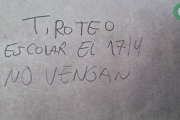 TIROTEO
ESCOLAR EL 17/4
NO VENGAN